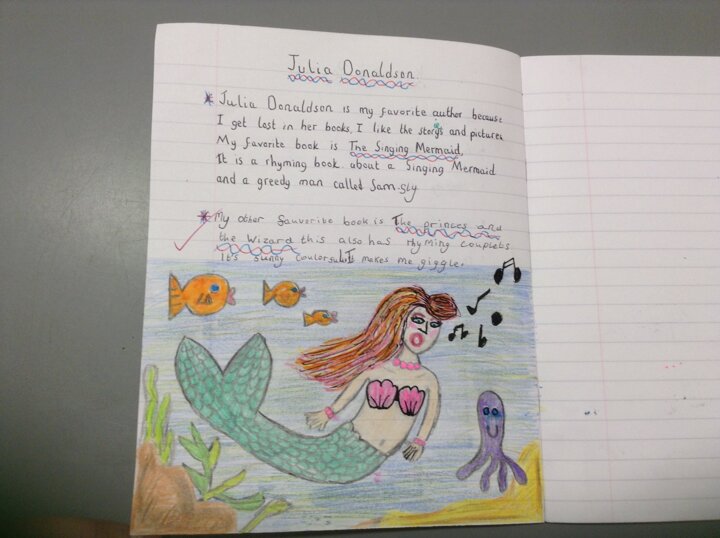 Julia Donaldson.
Julia Donaldson is my favorite author because
I get lost in her books. I like the storys and pictures
My favorite book is The Singing Mermaid.
It is a rhyming book about a Singing Mermaid
and a greedy man called Sam.sly
My other fauverite book is The princes and
the Wizard this also has rhyming couplets
it's funny coulorful. It makes me giggle.